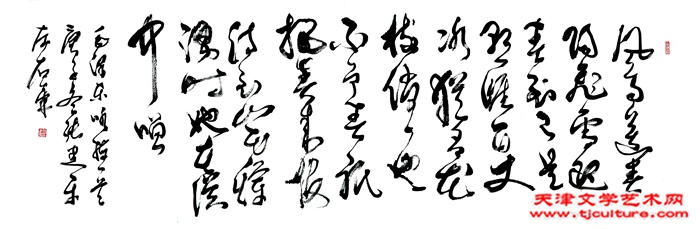 风雨送春
归飞雪迎
春到已是
悬崖百丈
冰犹有花
枝俏俏也
不争春只
把春来报
待到山花烂
漫时她在丛
中笑
毛泽东咏梅一首
天津文学艺术网
www.tjculture.com